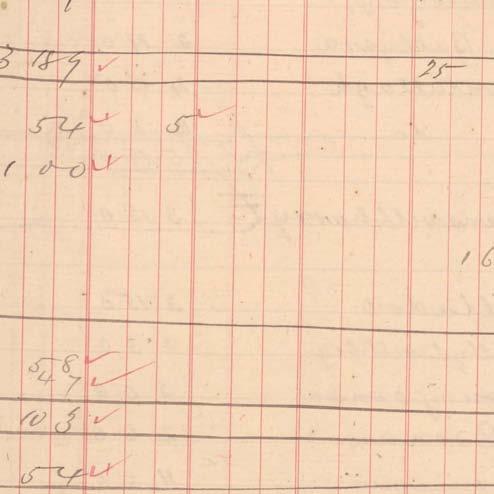 3 189 25
54 5
1 00
16
58
47
103
54